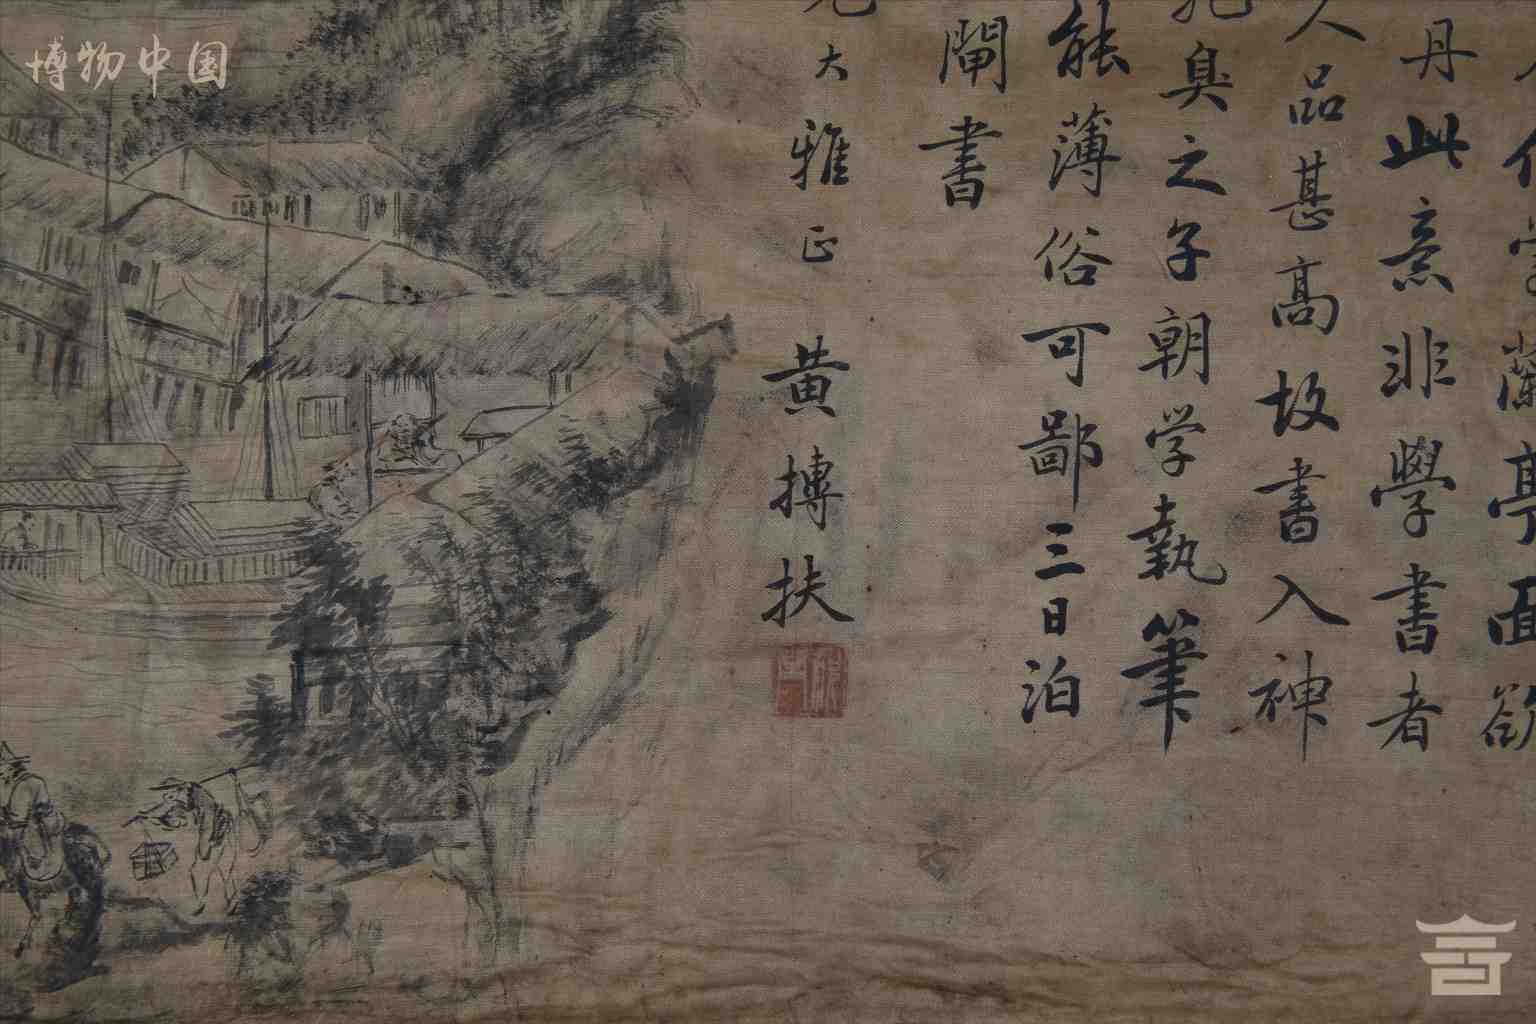 博物中国
蘭亭面欲
丹此意非學書者
人品甚高故書入神
乳臭之子朝学執筆
能薄俗可鄙三日泊
閘書
大雅正 黄摶扶